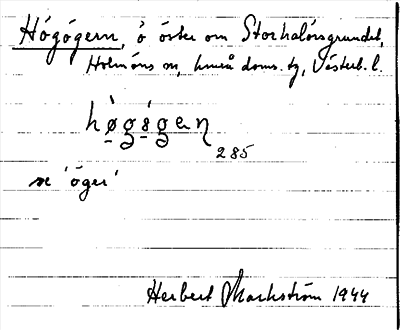 Högögern, ö öster om Storhalörsgrundet,
Holmöns sn, Umeå doms. tg, Västerb. l.
hø̀gø̀gen
285
se 'öger'
Herbert Markström 1944